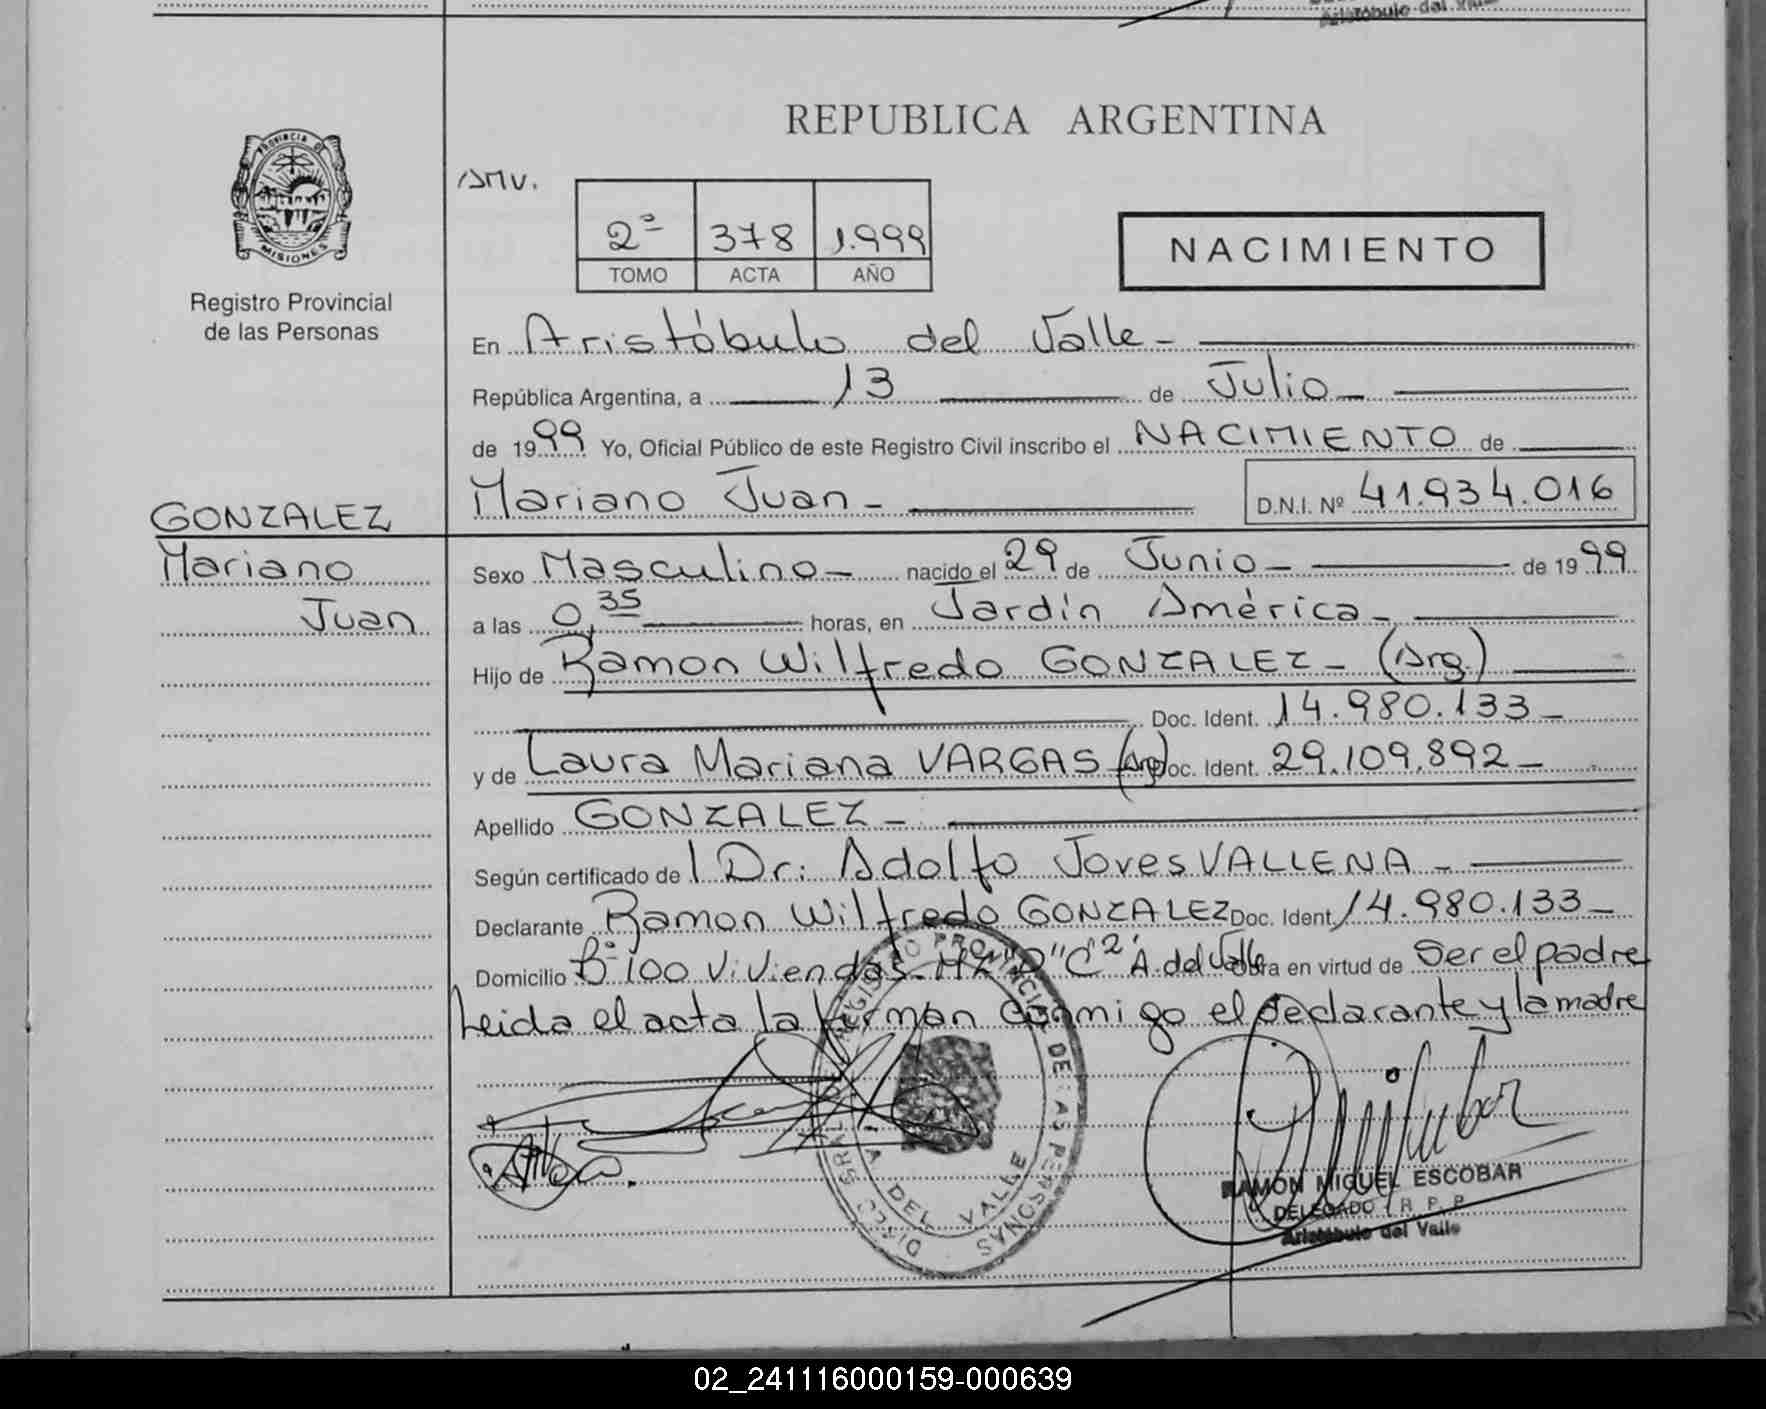 Aristóbulo del Valle
REPUBLICA ARGENTINA
PROVINCIA DE
MISIONES
Registro Provincial
de las Personas
2º 378 1.999
TOMO ACTA AÑO
NACIMIENTO
En Aristóbulo del Valle -
República Argentina, a 13 de Julio -
de 1999 Yo, Oficial Público de este Registro Civil inscribo el NACIMIENTO de
Mariano Juan - D.N.I. Nº 41.934.016
GONZALEZ
Mariano
Juan
Sexo Masculino - nacido el 29 de Junio - de 1999
a las 0,35 horas, en Jardín América -
Hijo de Ramon Wilfredo GONZALEZ - (Arg.)
Doc. Ident. 14.980.133 -
y de Laura Mariana VARGAS (Arg) Doc. Ident. 29.109.892 -
Apellido GONZALEZ -
Según certificado de Dr: Adolfo Joves VALLENA -
Declarante Ramon Wilfredo GONZALEZ Doc. Ident. 14.980.133 -
Domicilio Bº 100 Viviendas - Mz "D" C 2 A. del Valle obra en virtud de Ser el padre
Leida el acta la firman conmigo el declarante y la madre
REGISTRO PROVINCIAL DE LAS PERSONAS
DEL VALLE
RAMON MIGUEL ESCOBAR
DELEGADO R. P. P.
Aristóbulo del Valle
02_241116000159-000639